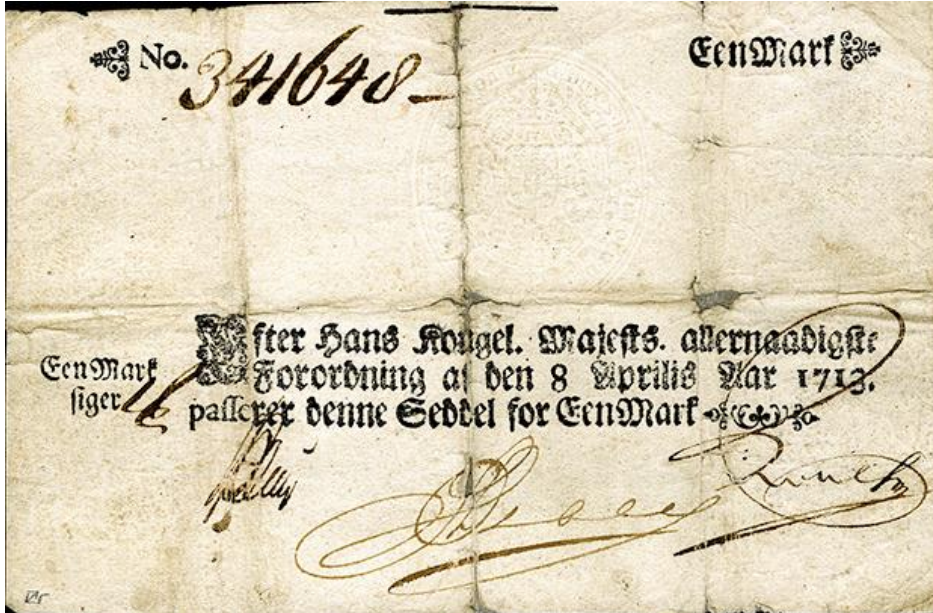 No. 341648
Een Mark
Efter Hans Kongel. Majests. allernaadigste
Een Mark
Forordning af den 8 Aprilis Aar 1713.
siger
passerer denne Seddel for Een Mark